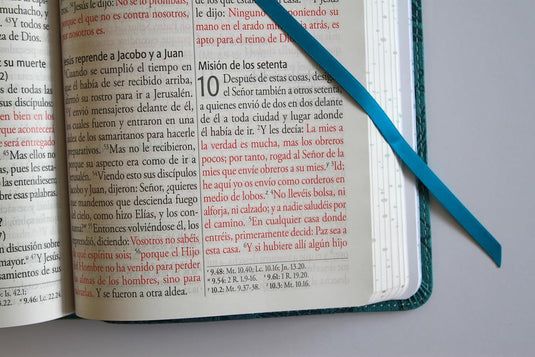 muchacho, y
⁴³Y todos
za de Dios.
su muerte
2)
de todas las
sus discípulos:
en bien en los
porque acontecerá
será entregado
⁴⁵Mas ellos no
pues les esta-
las entendiesen
discusión sobre
mayor. ⁴⁷Y Jesús,
samientos de sus
Is. 42.1;
9.46: Lc. 22.24.
Jesús le dijo: No se lo prohibáis;
porque el que no es contra nosotros,
por nosotros es.
Jesús reprende a Jacobo y a Juan
Cuando se cumplió el tiempo en
que él había de ser recibido arriba,
afirmó su rostro para ir a Jerusalén.
⁵²Y envió mensajeros delante de él,
los cuales fueron y entraron en una
aldea de los samaritanos para hacerle
preparativos. ⁵³Mas no le recibieron,
porque su aspecto era como de ir a
Jerusalén. ⁵⁴Viendo esto sus discípulos
Jacobo y Juan, dijeron: Señor, ¿quieres
que mandemos que descienda fuego
del cielo, como hizo Elías, y los con-
suma? ⁵⁵Entonces volviéndose él, los
reprendió, diciendo: Vosotros no sabéis
de qué espíritu sois; ⁵⁶porque el Hijo
del Hombre no ha venido para perder
las almas de los hombres, sino para
salvarlas. Y se fueron a otra aldea.
que están en mi casa.
le dijo: Ninguno poniendo su
mano en el arado mira hacia atrás, es
apto para el reino de Dios.
Misión de los setenta
10 Después de estas cosas, designó
el Señor también a otros setenta,
a quienes envió de dos en dos delante
de él a toda ciudad y lugar adonde
él había de ir. ²Y les decía: La mies a
la verdad es mucha, mas los obreros
pocos; por tanto, rogad al Señor de la
mies que envíe obreros a su mies. ³Id;
he aquí yo os envío como corderos en
medio de lobos. ⁴No llevéis bolsa, ni
alforja, ni calzado; y a nadie saludéis por
el camino. ⁵En cualquier casa donde
entréis, primeramente decid: Paz sea a
esta casa. ⁶Y si hubiere allí algún hijo
9.48: Mt. 10.40; Lc. 10.16; Jn. 13.20.
9.54: 2 R. 1.9-16. 9.61: 1 R. 19.20.
10.2: Mt. 9.37-38. 10.3: Mt. 10.16.